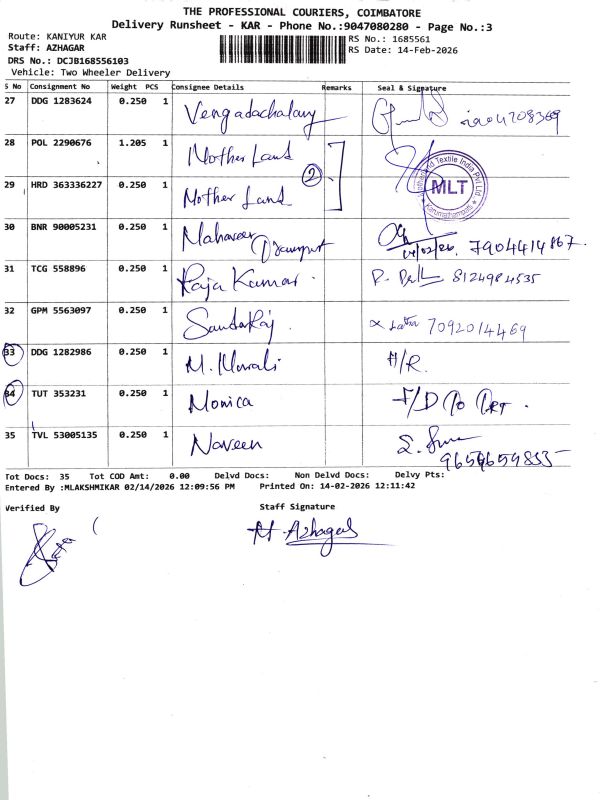 THE PROFESSIONAL COURIERS, COIMBATORE
Delivery Runsheet - KAR - Phone No.:9047080280 - Page No.:3
Route: KANIYUR KAR
RS No.: 1685561
Staff: AZHAGAR
RS Date: 14-Feb-2026
DRS No.: DCJB168556103
Vehicle: Two Wheeler Delivery
S No Consignment No Weight PCS Consignee Details Remarks Seal & Signature
27 DDG 1283624 0.250 1 Vengadachalam
28 POL 2290676 1.205 1 Mother Land
2
29 HRD 363336227 0.250 1 Mother Land
Textile India Pvt Ltd
MLT
30 BNR 90005231 0.250 1 Mahaveer 7904414867.
14/02/26.
31 TCG 558896 0.250 1 Raja Kumar. 8124984535
32 GPM 5563097 0.250 1 SundaRaj. 7092014469
33 DDG 1282986 0.250 1 M. Murali A/R.
34 TUT 353231 0.250 1 Monica
35 TVL 53005135 0.250 1 Naveen
Tot Docs: 35 Tot COD Amt: 0.00 Delvd Docs: Non Delvd Docs: Delvy Pts:
Entered By :MLAKSHMIKAR 02/14/2026 12:09:56 PM Printed On: 14-02-2026 12:11:42
Verified By Staff Signature
M. Azhagar